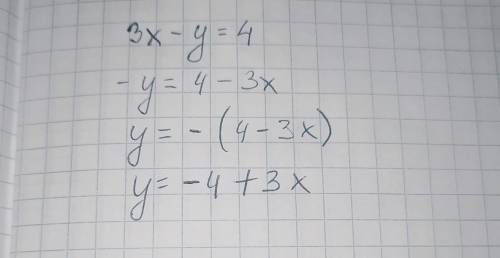 3x - y = 4
-y = 4 - 3x
y = - (4 - 3x)
y = -4 + 3x